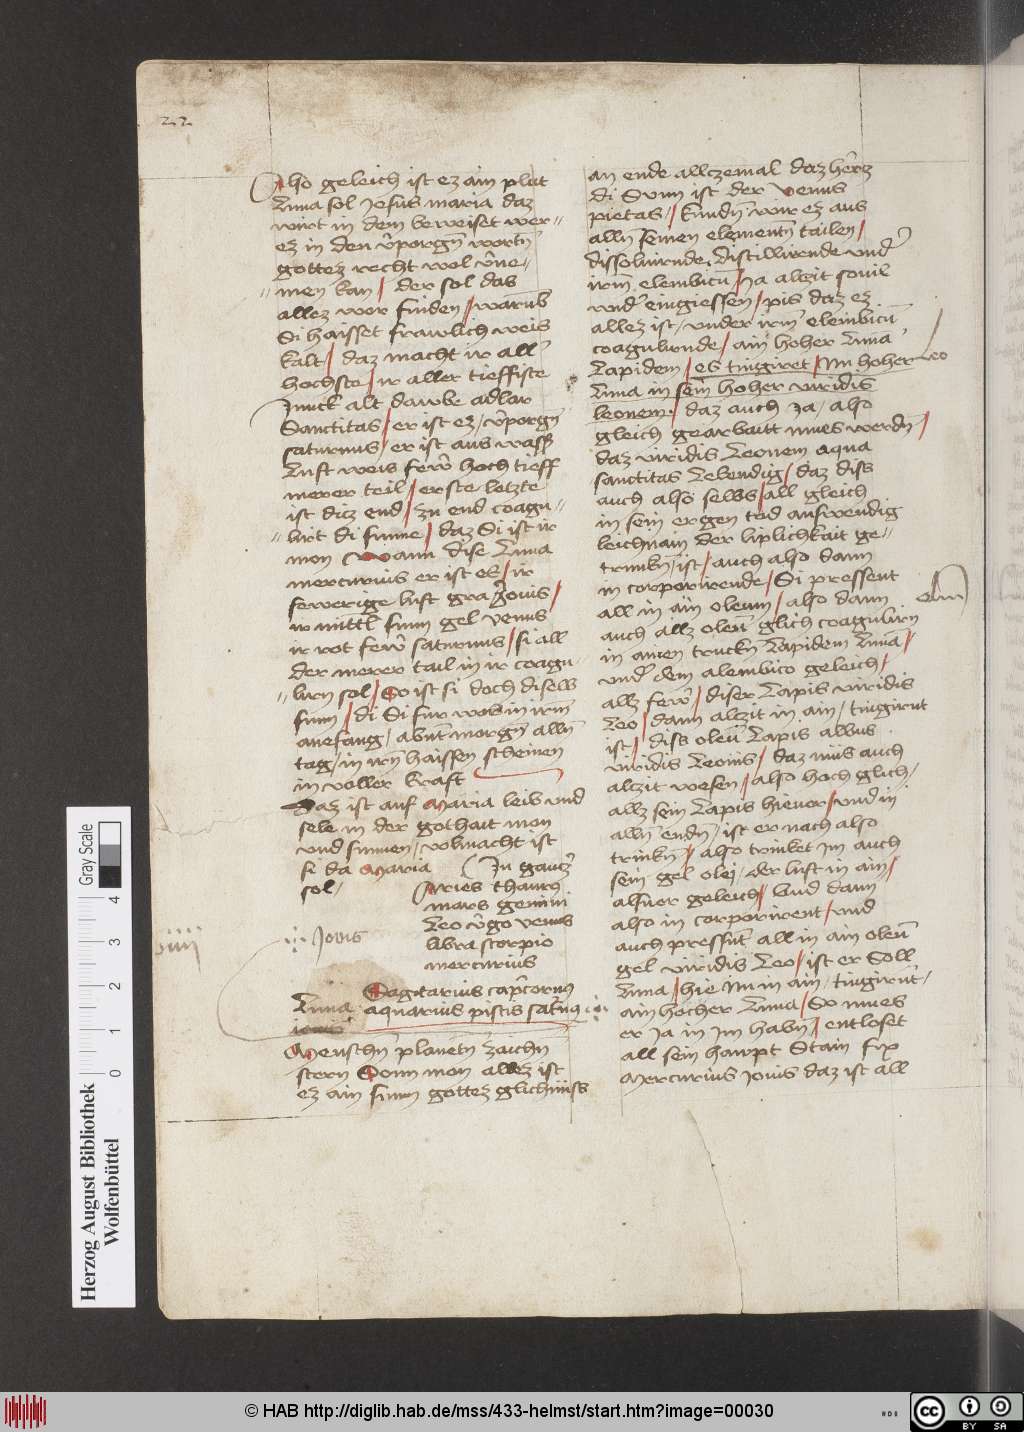 22
Also geleich ist ez ain plut
Luna sol Jesus maria daz
wirt in dem beweiset wer
ez in den v̂porgn̄ wortn̄
gottez recht wol v̂ne
men kan / der sol das
allez wor finden / warub̄
Si haisset frawlich weis
kalt / daz macht ir all
hochste / ir aller tieffiste
Junck alt dawbe adlar
Sanctitas / er ist ez / v̂porgn̄
saturnus / er ist aus wass̄
Luft weis few̄ hoch tieff
merer teil / erste letzte
ist diz end / zu end coagu
lirt di sunne / daz Si ist ir
mon Wann dise Luna
mercurius er ist ek / ir
fewerige luft gra / Jouis /
ir mittl sunn gel venus
ir rot few̄ saturnus / si all
der merer tail in ir coagu
lirn sol / So ist si doch diselb
sunn / di Si fur wob in irm̄
anefang / abnt morgn̄ alln̄
tag / in irn̄ haissen scheinen
in voller kraft
Daz ist auf Maria leib und
sele in der gothait mon
und sunnen / volmacht ist
si da Maria
sol /
In gantz̄
Aries thaurꝯ
mars gemini
Leo v̂go venus
libra scorpio
mercurius
Jovis
Sagitarius cap̄cornꝯ
Luna aquarius piscis
Menschn̄ planetn̄ zaichn̄
stern Sonn mon allez ist
ez ain sunn gottez glichnüss
an ende allczemal daz hercz
di Sunn ist der venus
pietas / kundn̄ wir ez aus
alln̄ seinen elementn̄ tailen /
dissoluirnde distillirende und̄
irm̄ elembicū / Ja alzit souil
und̄ eingiessen / pis daz ez
allez ist / under irm̄ elembicū
coagulirnde / ain hoher Lunā
Lapidem / es tingiret / Im hoher leo
Luna in sein hoher viridis
leonem / daz auch Ja / also
gleich gearbaitt mues werdn̄ /
daz viridis Leonem aqua
sanctitas Lebendig / daz diss
auch also selbs / all gleich
in sein ergen tod auswendig
leichnam der liplichkait ge
trunkn̄ ist / auch also dann
in corporirende / Si pressent
all in ain oleum / also dann
oleum
auch allz oleū glich coagulirn
in ainen truckn̄ Lapidem Lunā /
und̄ dem alembico geleich /
allz few̄ / diser Lapis viridis
Leo / dann alzit in ain / tingirnt
ist / diss oleū Lapis albus
viridis Leonis / daz müs auch
alczit wesen / also hoch glich /
allz sein Lapis hieuor / und̄ in
alln̄ endn̄ / ist er nach also
trinkn̄ / also trinket Im auch
sein gel olej / der luft in ain /
alsuor geleich / Und dann
also in corporirent / und
auch pressnt̄ all in ain oleū
gel viridis Leo / ist er Soll
Luna / hie Im in ain / tingirnt /
ain hocher Luna / So mues
er Ja in Im habn̄ / entloset
all sein hawpt Stain fix
Mercurius Jouis daz ist all
Herzog August Bibliothek
Wolfenbüttel
0 1 2 3 4
Gray Scale
© HAB http://diglib.hab.de/mss/433-helmst/start.htm?image=00030
HAB
cc BY SA